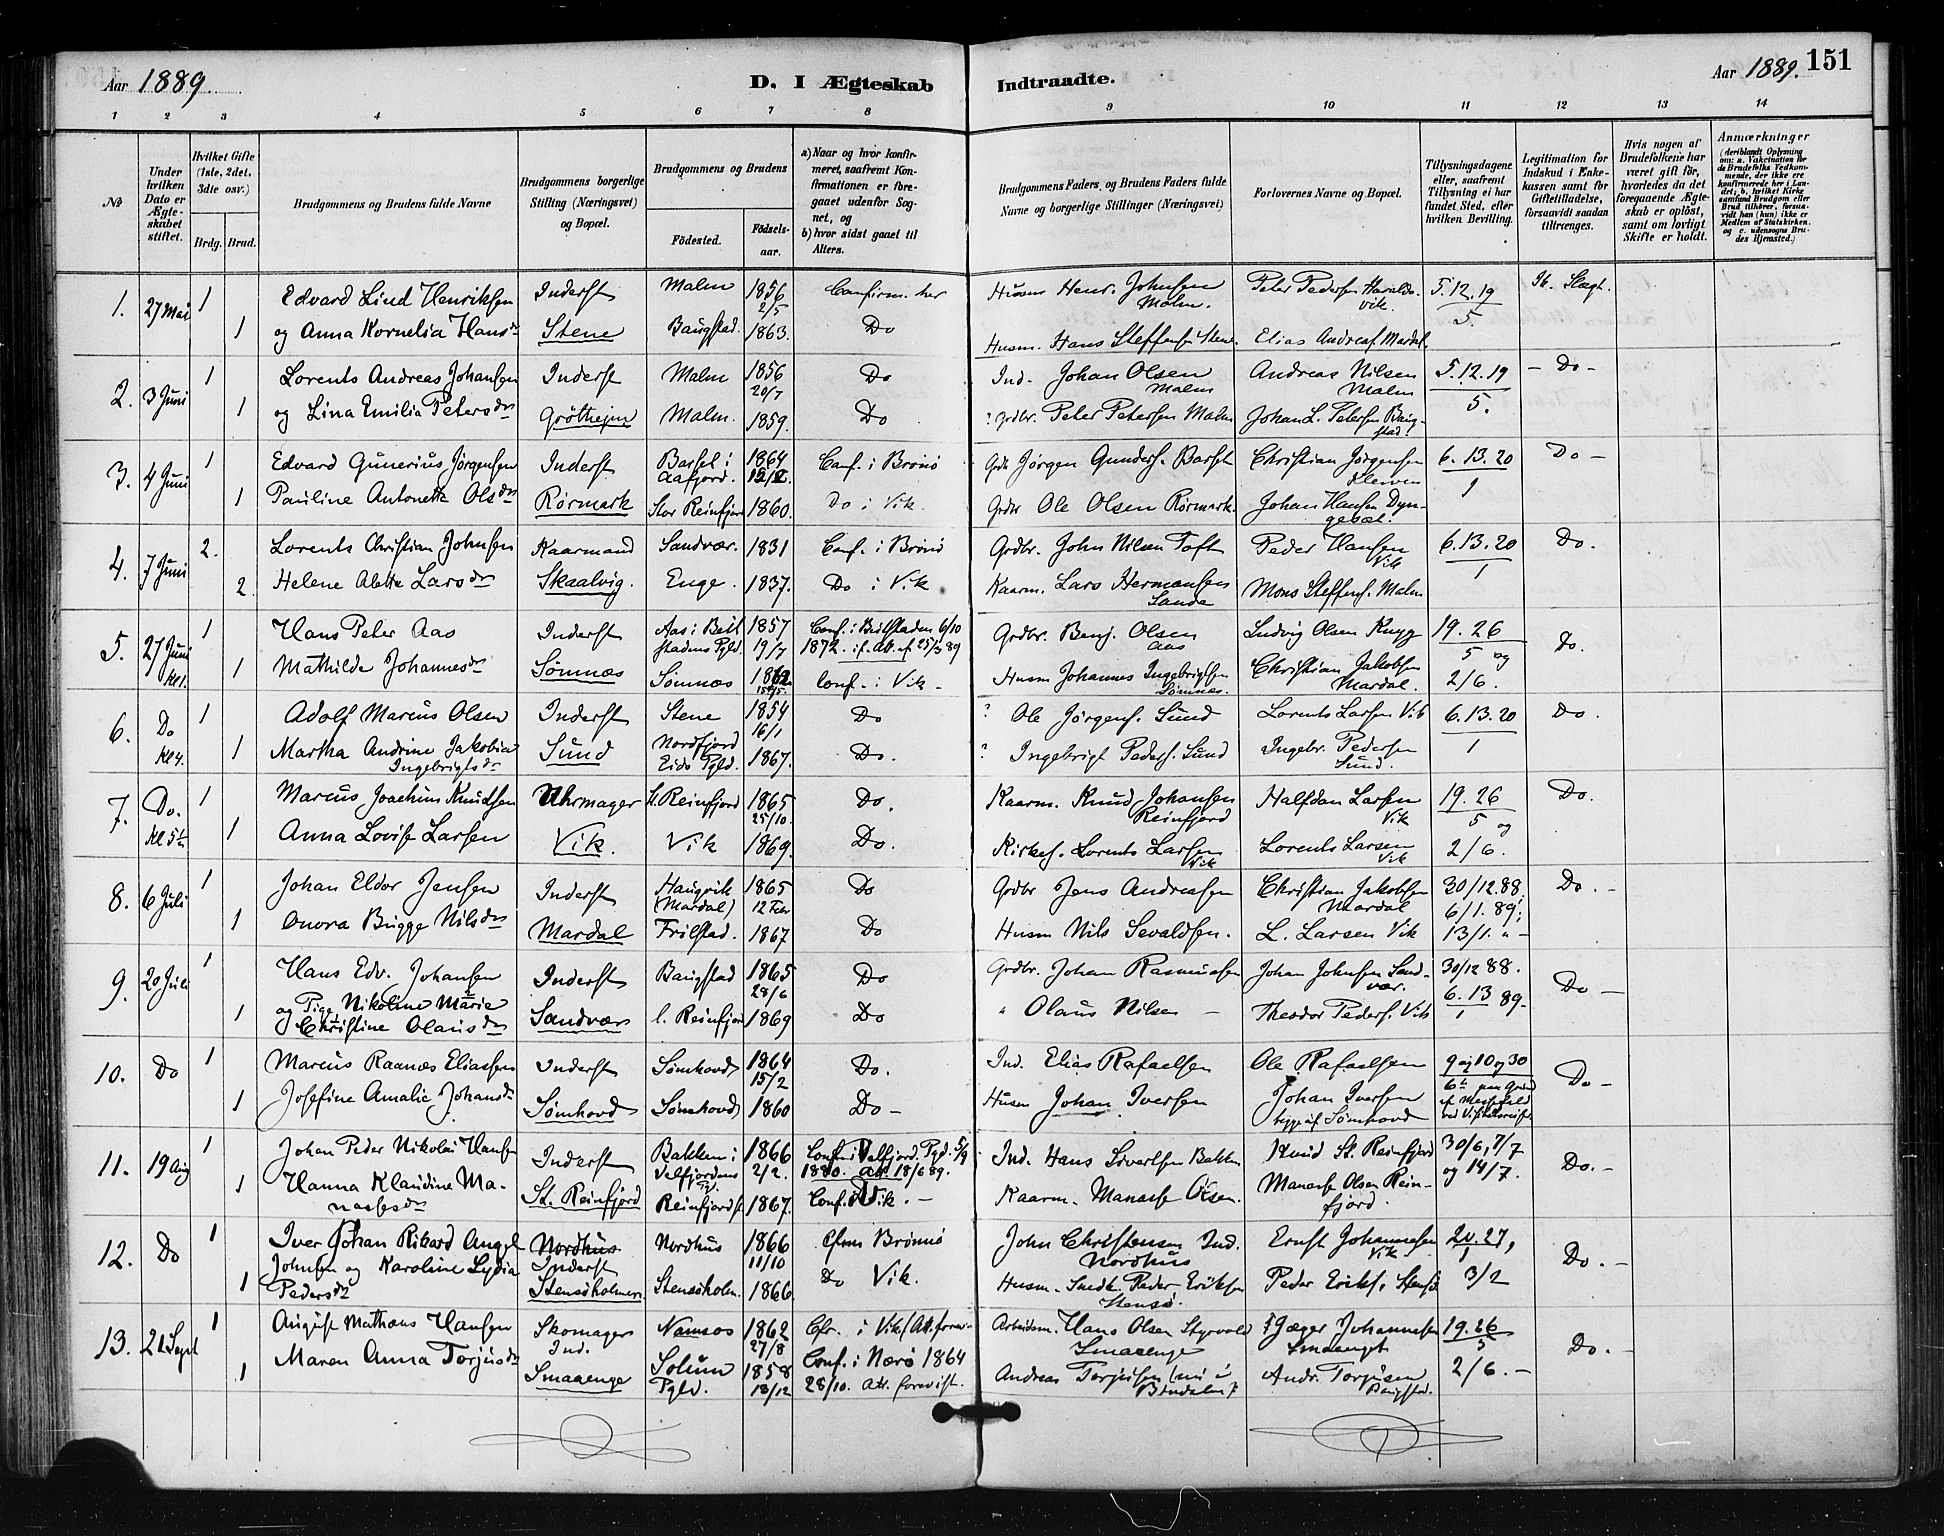 Aar 1889
D. I Ægteskab Indtraadte.
Aar 1889. 151
1 2 3 4 5 6 7 8 9 10 11 12 13 14
No
Under hvilken Dato er Ægteskabet stiftet.
Hvilket Gifte (1ste, 2det, 3die osv.)
Brdg. Brud.
Brudgommens og Brudens fulde Navne
Brudgommens borgerlige Stilling (Næringsvei) og Bopæl.
Brudgommens og Brudens
Födested.
Födselsaar.
a) Naar og hvor konfirmeret, saafremt Konfirmationen er foregaaet udenfor Sognet, og
b) hvor sidst gaaet til Alters.
Brudgommens Faders, og Brudens Faders fulde Navne og borgerlige Stillinger (Næringsvei)
Forlovernes Navne og Bopæl.
Tillysningsdagene eller, saafremt Tillysning ei har fundet Sted, efter hvilken Bevilling.
Legitimation for Indskud i Enkekassen samt for Giftetilladelse, forsaavidt saadan tiltrænges.
Hvis nogen af Brudefolkene har været gift för, hvorledes da det foregaaende Ægteskab er oplöst, samt om lovligt Skifte er holdt.
Anmærkninger
(deriblandt Oplysning om: a. Vakcination for de Brudefolks Vedkommende, der ikke ere konfirmerede her i Landet; b. hvilket Kirkesamfund Brudgom eller Brud tilhörer, forsaavidt han (hun) ikke er Medlem af Statskirken, og c. udensogns Brudes Hjemsted.)
1. 27 Mai 1 Edvard Lind Henriksen Inderst Malm 1856 2/5 Confirm. her Husm Henr. Johnsen Malm. Peter Pedersen Haraldsvik. 5.12.19 5. Slægt.
1 og Anna Kornelia Hansdr Stene Baugstad. 1863. Do Husm. Hans Steffensen Stene. Elias Andreas. Mardal.
2. 3 Juni 1 Lorents Andreas Johansen Inderst Malm 1856 20/7 Do Ind. Johan Olsen Malm Andreas Nilsen Malm 5.12.19 5. - Do -
1 og Lina Emilia Petersdr Gröttheim Malm. 1859. Do Grdbr. Peter Petersen Malm Johan L. Petersen Baugstad.
3. 4 Juni 1 Edvard Gunerius Jörgensen Inderst Barset i Aafjord. 1864 Conf. i Brönö Jörgen Gunders. Barset Christian Jörgensen Kleiven 6.13.20 1 Do -
1 Pauline Antonette Olsdr Rörmark Stor Reinfjord 1860. Do i Vik. Ole Olsen Rörmark. Johan Hansen
4. 7 Juni 2. Lorents Christian Johnsen Kaarmand Sandvær. 1831 Conf. i Brönö Grdbr. John Nilsen Toft Peder Hansen Vik 6.13.20 1 Do.
2. Helene Alette Larsdr Skaalvig. Enge. 1837. Do i Vik Kaarm. Lars Hermansen Sande Mons Steffens. Malm
5. 27 Juni Kl 1. 1 Hans Peter Aas Inderst Aas i Beitstadens Pgld. 1857 19/7 Conf. i Beitstaden 6/10 1872. Grdbr. Benj. Olsen Aas Ludvig Olsen 19. 26 5 og Do.
1 Mathilde Johannesdr Sömnæs Sömnæs Conf. i Vik - Husm Johannes Ingebrigtsen Sömnæs. Christian Jakobsen Mardal. 2/6.
6. Do Kl 4. 1 Adolf Marcus Olsen Inderst Stene 1854 16/1 Do Ole Jörgens. Sund Lorents Larsen Vik 6.13.20 1 Do.
1 Martha Andrine Jakobia Ingebrigtsdr Sund Nordfjord Eids Pgld. 1867. Do. Ingebrigt Peders. Sund Ingebr. Pedersen Sund.
7. Do. Kl 5½ 1 Marcus Joachim Knudsen Uhrmager St. Reinfjord 1865 25/10. Do. Kaarm. Knud Johansen Reinfjord Halfdan Larsen Vik 19. 26 5 og Do.
1 Anna Lovise Larsen Vik. Vik 1869. Do. Kirkes. Lorents Larsen Vik Lorents Larsen Vik 2/6.
8. 6 Juli 1 Johan Eldor Jensen Inderst Haugvik (Mardal) 1865 12 Febr Do Grdbr Jens Andreasen Christian Jakobsen Mardal 30/12 88. 6/1. 89; Do. -
1 Onora Bugge Nilsdr Mardal Frilstad. 1867 Do Husm Nils Sevaldsen. L. Larsen Vik 13/1. " -
9. 20 Juli 1 Hans Edv. Johansen Inderst Baugstad 1865 28/6 Do Grdbr. Johan Rasmussen Johan Johnsen Sandvær. 30/12 88. Do -
1 og Pige Nikoline Marie Christine Olausdr Sandvær l. Reinfjord 1869 Do " Olaus Nilsen - Theodor Peders. Vik 6. 13 89. 1
10. Do 1 Marcus Raanæs Eliassen Inderst Sömhovd 1864 15/2 Do. Ind. Elias Rafaelsen Ole Rafaelsen 9 og 10 og 30 Do -
1 Josefine Amalie Johansdr Sömhovd Sömhovd 1860 Do - Husm Johan Iversen Johan Iversen begge af Sömhovd
11. 19 Aug 1 Johan Peder Nikolai Hansen Inderst Bakken i Velfjordens Pgl. 1866 2/2. Conf. i Velfjord. Pgd. 5/9 1880. att. 18/6 89. Ind. Hans Sivertsen Bakken Knud St. Reinfjord 30/6, 7/7 og 14/7. Do. -
1 Hanna Klaudine Manassesdr St. Reinfjord Reinfjord st. 1867. Conf. i Vik. - Kaarm. Manasse Olsen. Manasse Olsen Reinfjord
12. Do 1 Iver Johan Rikard Angel Nordhus Inderst Nordhus 1866 11/10 Cfirm Brönnö John Christensen Ind. Nordhus Ernst Johannesen Vik 20. 27, 1 Do. -
1 Johnsen og Karoline Lydia Pedersdr Stensöholmen Stensöholm. 1866. Do Vik. Husm. Smed. Peder Eriksen Stensö. Peder Eriks. Stensö 3/2
13. 21 Sept 1 August Mathæus Hansen Skomager Ind. Namsos 1862 27/8 Cfr. i Vik Arbeidsm. Hans Olsen Styrvold Smaaenge Jæger Johannesen Smaaenget 19. 26 5 Do. -
1 Maren Anna Torjusdr Smaaenge Solum Pgld. 1858 18/12 Conf. i Nærö 1864 28/10. Att. forevist. Andreas Torjusen (nu i Bindalen) Andr. Torjusen Baugstad. 2/6. -